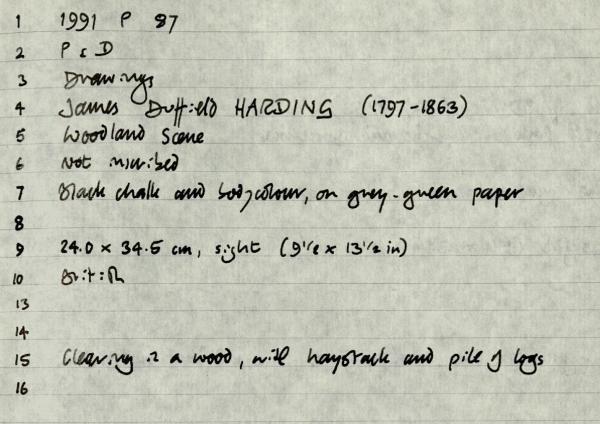 1 1991 P 87
2 P & D
3 Drawings
4 James Duffield HARDING (1797-1863)
5 Woodland Scene
6 Not inscribed
7 Black chalk and bodycolour, on grey-green paper
8
9 24.0 x 34.5 cm, sight (9 1/2 x 13 1/2 in)
10 British
13
14
15 Clearing in a wood, with haystack and pile of logs
16